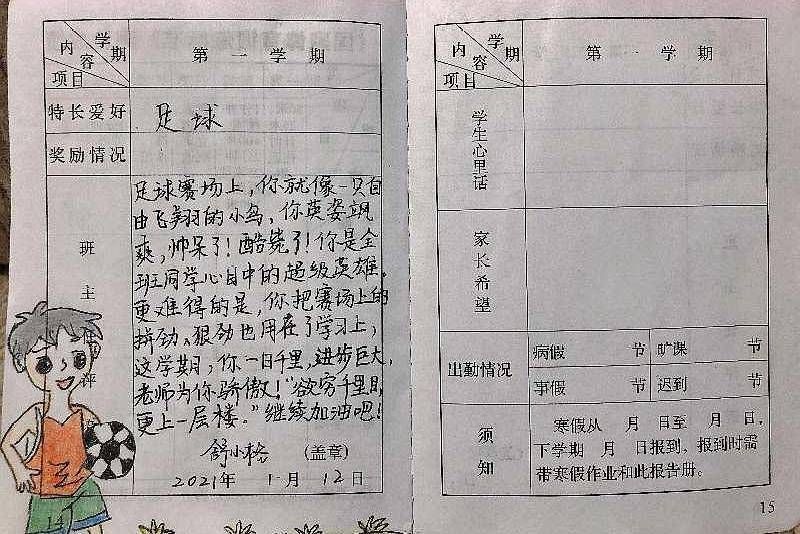 学期
内容
项目
第一学期
特长爱好
足球
奖励情况
班主
足球赛场上，你就像一只自
由飞翔的小鸟，你英姿飒
爽，帅呆了！酷毙了！你是全
班同学心目中的超级英雄。
更难得的是，你把赛场上的
拼劲、狠劲也用在了学习上，
这学期，你一日千里，进步巨大，
老师为你骄傲！“欲穷千里目，
更上一层楼。”继续加油吧！
舒小格 （盖章）
2021年 1月 12日
14
学期
内容
项目
第一学期
学生心里话
家长希望
出勤情况
病假 节 旷课 节
事假 节 迟到 节
须知
寒假从 月 日至 月 日，
下学期 月 日报到，报到时需
带寒假作业和此报告册。
15